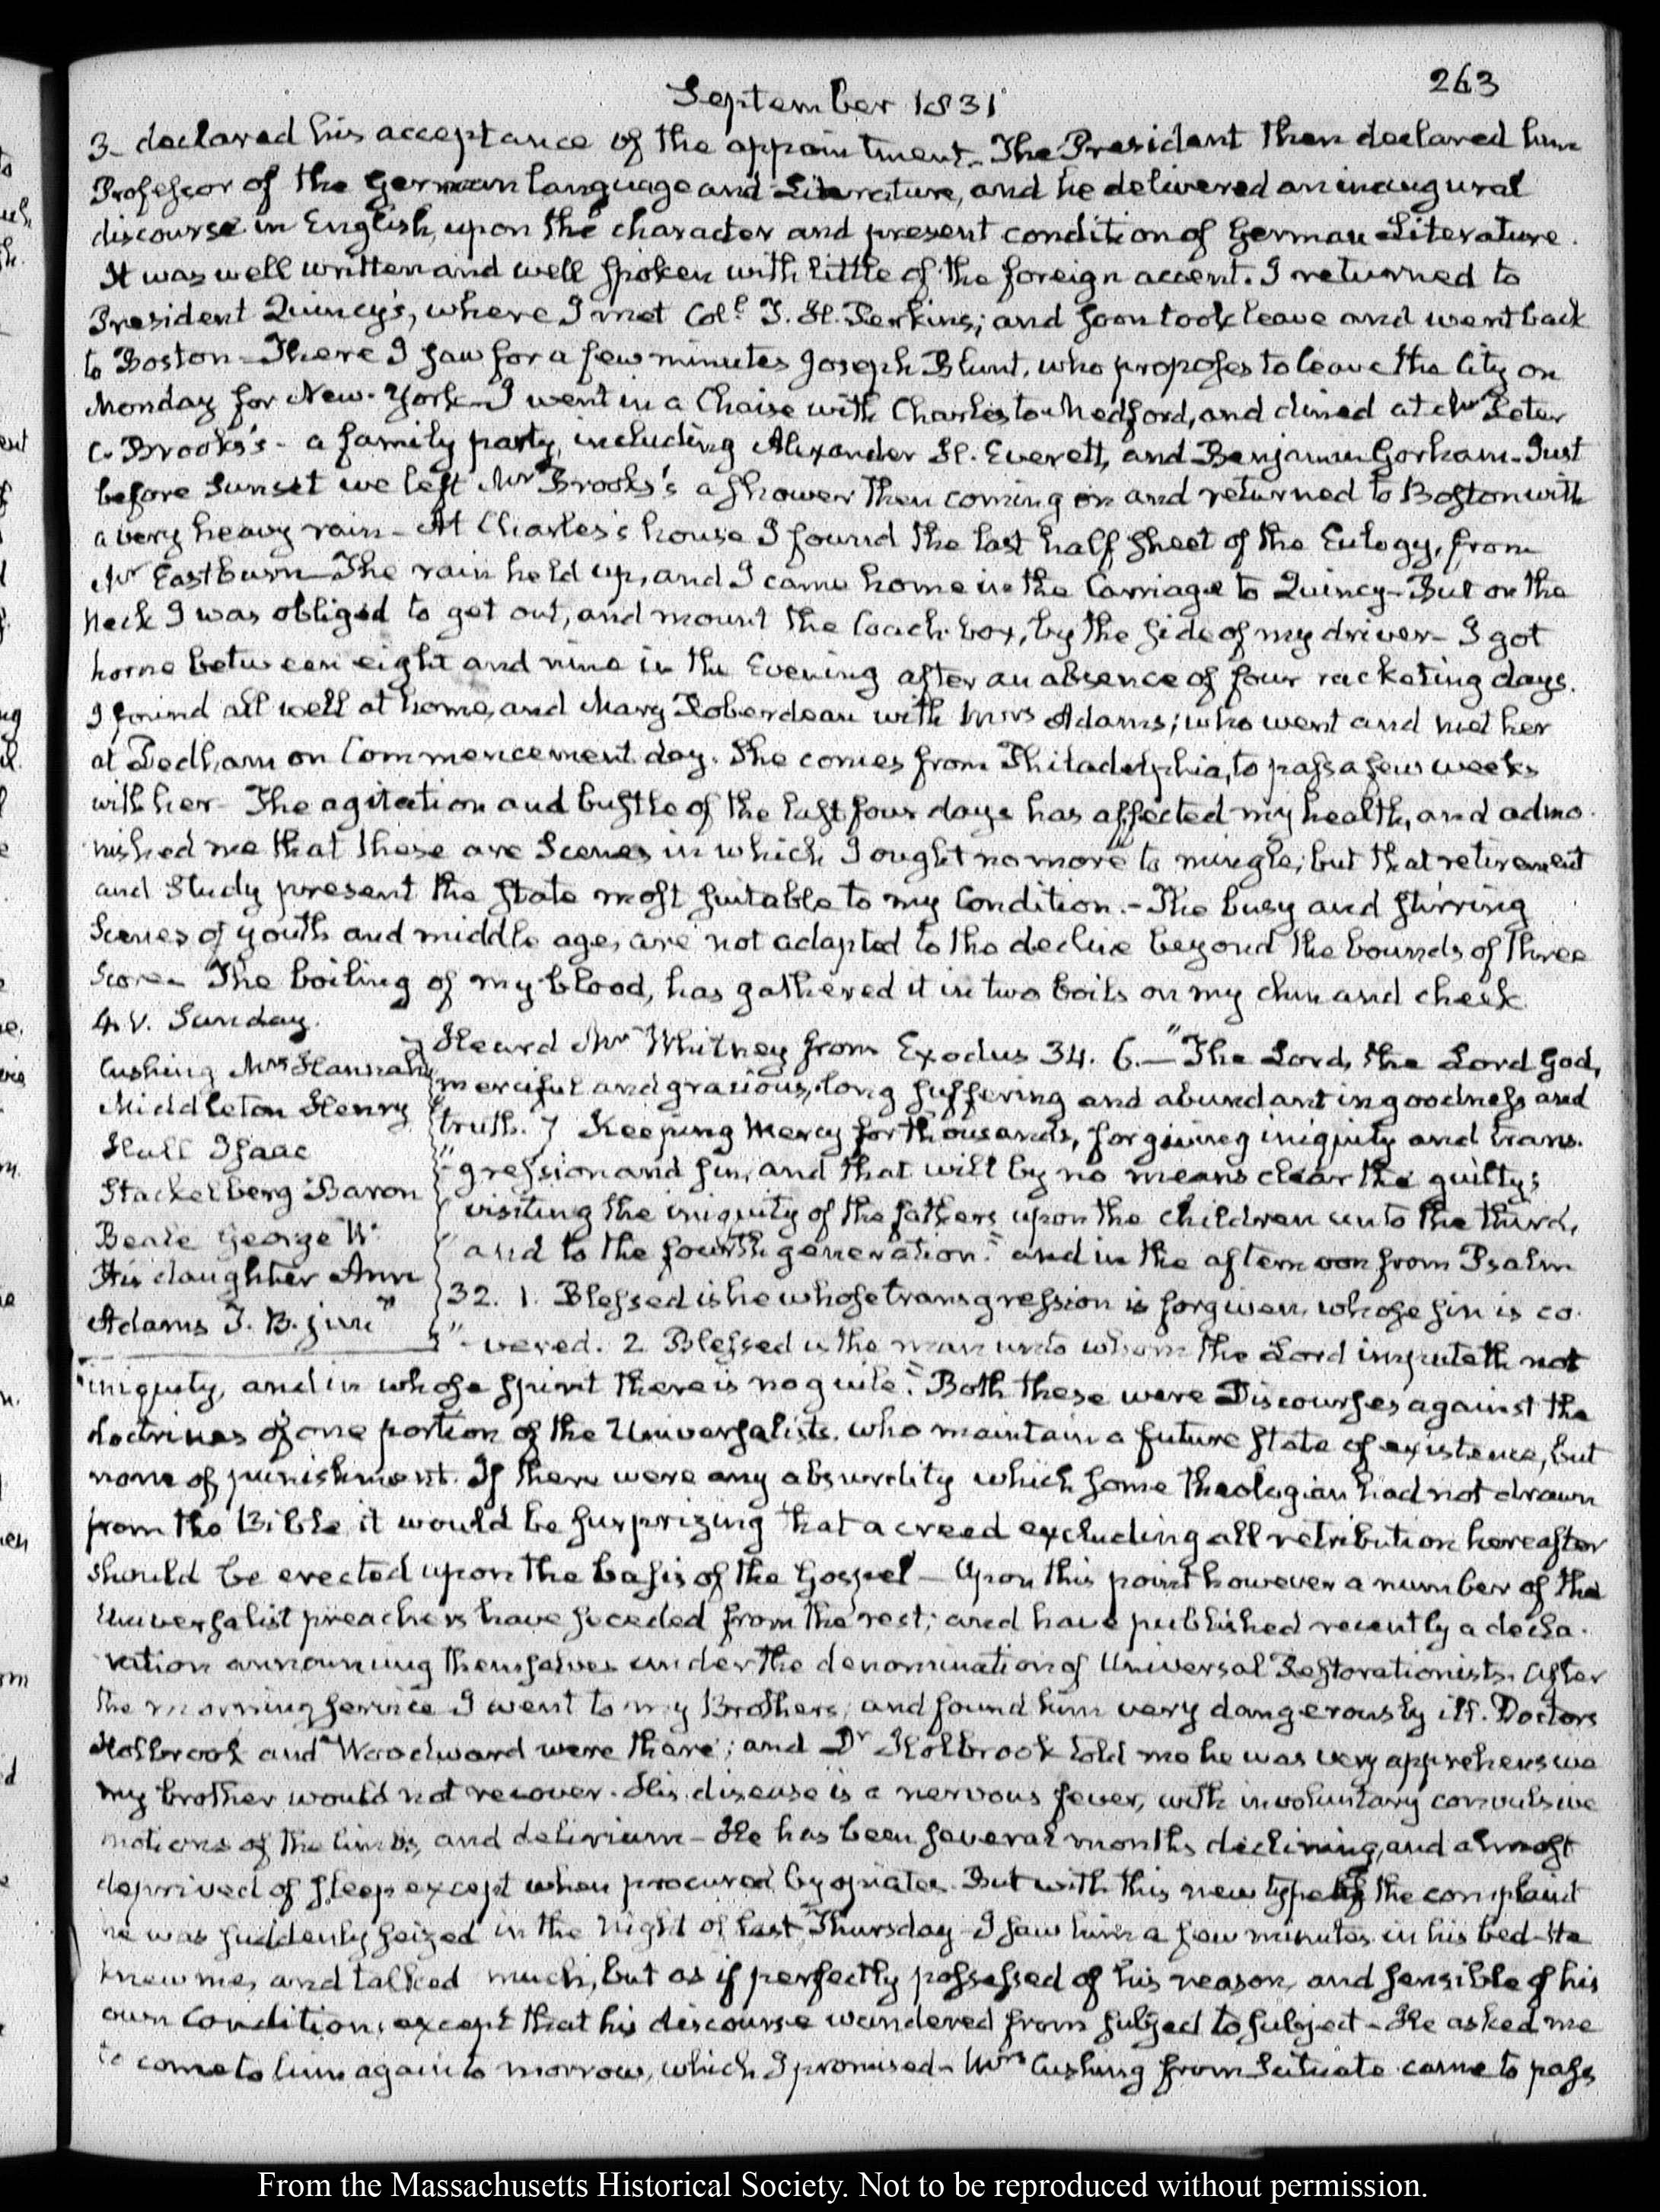 263
September 1831
3- declared his acceptance of the appointment- The President then declared him
Professor of the German language and Literature, and he delivered an inaugural
discourse in English, upon the character and present condition of German Literature.
It was well written and well spoken with little of the foreign accent. I returned to
President Quincy's, where I met Col.l T. H. Perkins; and soon took leave and went back
to Boston- There I saw for a few minutes Joseph Blunt, who proposes to leave the City on
Monday for New-York- I went in a Chaise with Charles to Medford, and dined at Mr Peter
C. Brooks's- a family party, including Alexander H. Everett, and Benjamin Gorham- Just
before Sunset we left Mr Brooks's a shower then coming on and returned to Boston with
a very heavy rain- At Charles's house I found the last half sheet of the Eulogy, from
Mr Eastburn- The rain held up, and I came home in the Carriage to Quincy- But on the
Neck I was obliged to get out, and mount the Coach-box, by the side of my driver- I got
home between eight and nine in the Evening after an absence of four racketing days.
I found all well at home, and Mary Roberdeau with Mrs Adams; who went and met her
at Dedham on Commencement day. She comes from Philadelphia, to pass a few weeks
with her- The agitation and bustle of the last four days has affected my health, and admo-
nished me that these are Scenes in which I ought no more to mingle; but that retirement
and Study present the state most suitable to my Condition.- The busy and stirring
Scenes of youth and middle age, are not adapted to the decline beyond the bounds of three
Score- The boiling of my blood, has gathered it in two boils on my chin and cheek
4. V. Sunday.
Cushing Mrs Hannah
Middleton Henry
Hull Isaac
Stackelberg Baron
Beale George W.
His daughter Ann
Adams T. B. junr
Heard Mr Whitney from Exodus 34. 6.- "The Lord, the Lord God,
merciful and gracious, long suffering and abundant in goodness and
truth. 7 Keeping Mercy for thousands, forgiving iniquity and trans-
"gression and sin, and that will by no means clear the guilty;
visiting the iniquity of the fathers upon the children unto the third,
"and to the fourth generation." and in the afternoon from Psalm
32. 1. Blessed is he whose transgression is forgiven, whose sin is co-
"-vered. 2 Blessed is the man unto whom the Lord imputeth not
"iniquity, and in whose spirit there is no guile." Both these were Discourses against the
doctrines of one portion of the Universalists, who maintain a future state of existence, but
none of punishment. If there were any absurdity which some theologian had not drawn
from the Bible it would be surprizing that a creed excluding all retribution hereafter
should be erected upon the basis of the Gospel- Upon this point however a number of the
Universalist preachers have seceded from the rest; and have published recently a decla-
ration announcing themselves under the denomination of Universal Restorationists. After
the morning service I went to my Brothers, and found him very dangerously ill. Doctors
Holbrook and Woodward were there; and Dr Holbrook told me he was very apprehensive
my brother would not recover. His disease is a nervous fever, with involuntary convulsive
motions of the limbs, and delirium- He has been several months declining, and almost
deprived of sleep except when procured by opiates. But with this new type of the complaint
he was suddenly seized in the Night of last Thursday- I saw him a few minutes in his bed- He
knew me, and talked much, but as if perfectly possessed of his reason, and sensible of his
own Condition; except that his discourse wandered from subject to subject- He asked me
to come to him again to morrow, which I promised- Mrs Cushing from Scituate came to pass
From the Massachusetts Historical Society. Not to be reproduced without permission.